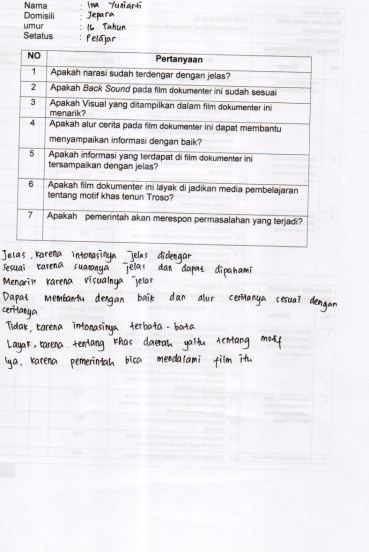 Nama : Ika Yuniarti
Domisili : Jepara
umur : 16 Tahun
Setatus : Pelajar
NO Pertanyaan
1 Apakah narasi sudah terdengar dengan jelas?
2 Apakah Back Sound pada film dokumenter ini sudah sesuai
3 Apakah Visual yang ditampilkan dalam film dokumenter ini
menarik?
4 Apakah alur cerita pada film dokumenter ini dapat membantu
menyampaikan informasi dengan baik?
5 Apakah informasi yang terdapat di film dokumenter ini
tersampaikan dengan jelas?
6 Apakah film dokumenter ini layak di jadikan media pembelajaran
tentang motif khas tenun Troso?
7 Apakah pemerintah akan merespon permasalahan yang terjadi?
Jelas, karena intonasinya jelas didengar
Sesuai karena suaranya jelas dan dapat dipahami
Menarik karena visualnya jelas
Dapat Membantu dengan baik dan alur ceritanya sesuai dengan
ceritanya
Tidak, karena intonasinya terbata - bata
Layak, karena tentang khas daerah yaitu tentang motif
Iya, karena pemerintah bisa mendalami film itu